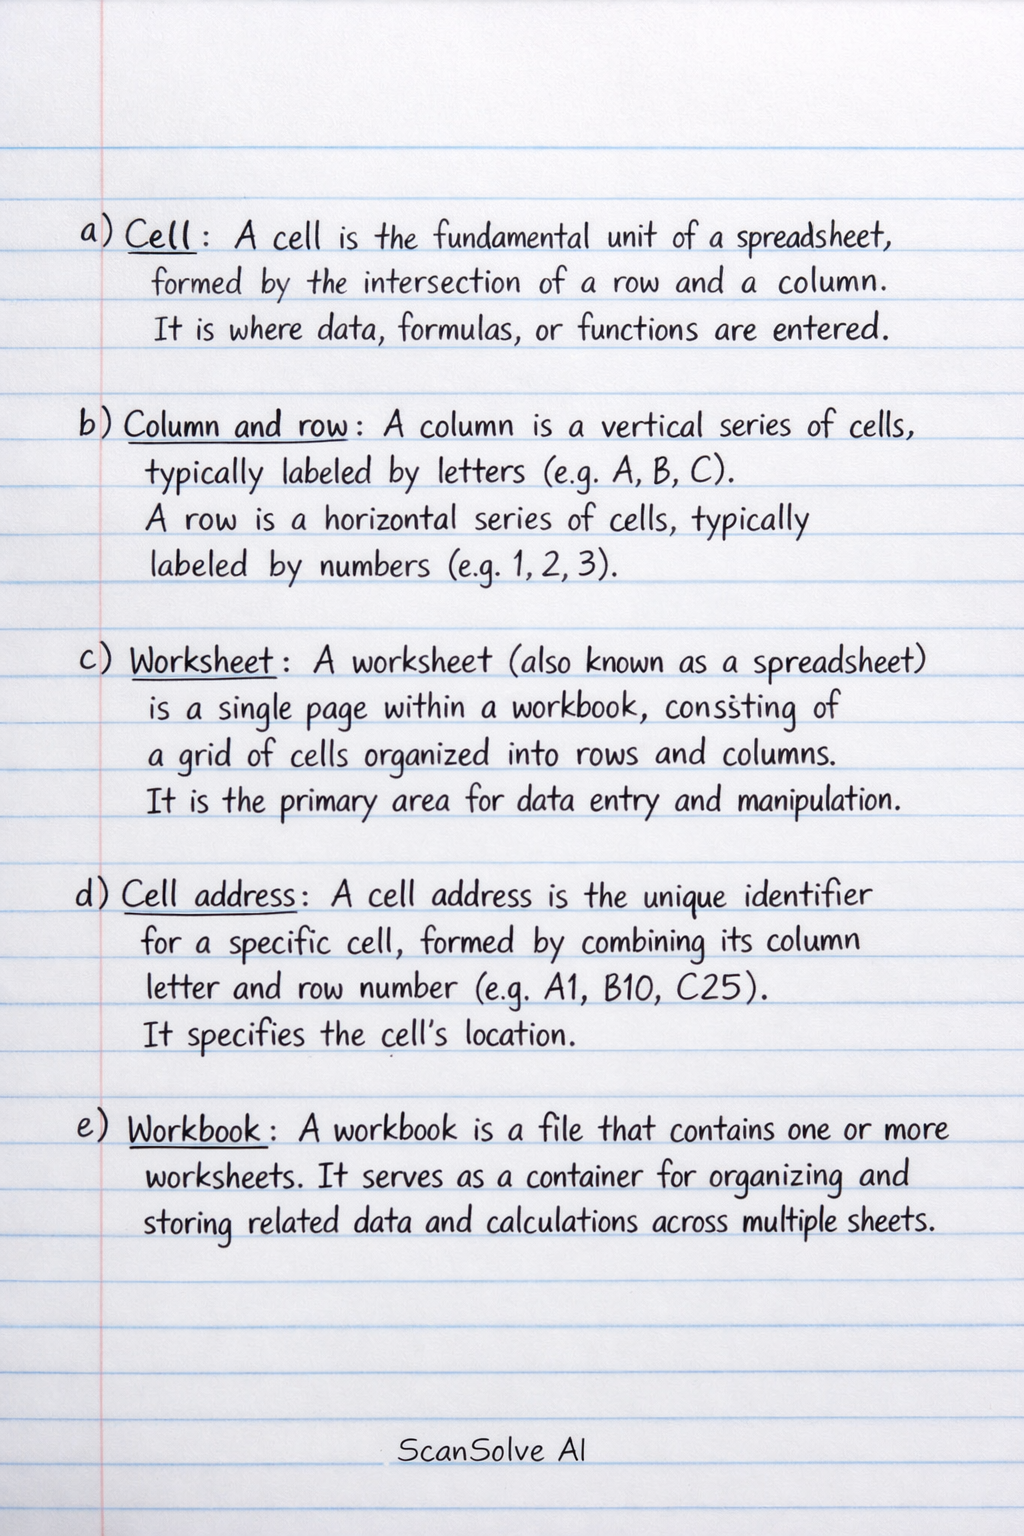 a) Cell: A cell is the fundamental unit of a spreadsheet,
formed by the intersection of a row and a column.
It is where data, formulas, or functions are entered.
b) Column and row: A column is a vertical series of cells,
typically labeled by letters (e.g. A, B, C).
A row is a horizontal series of cells, typically
labeled by numbers (e.g. 1, 2, 3).
c) Worksheet: A worksheet (also known as a spreadsheet)
is a single page within a workbook, consisting of
a grid of cells organized into rows and columns.
It is the primary area for data entry and manipulation.
d) Cell address: A cell address is the unique identifier
for a specific cell, formed by combining its column
letter and row number (e.g. A1, B10, C25).
It specifies the cell's location.
e) Workbook: A workbook is a file that contains one or more
worksheets. It serves as a container for organizing and
storing related data and calculations across multiple sheets.
ScanSolve AI